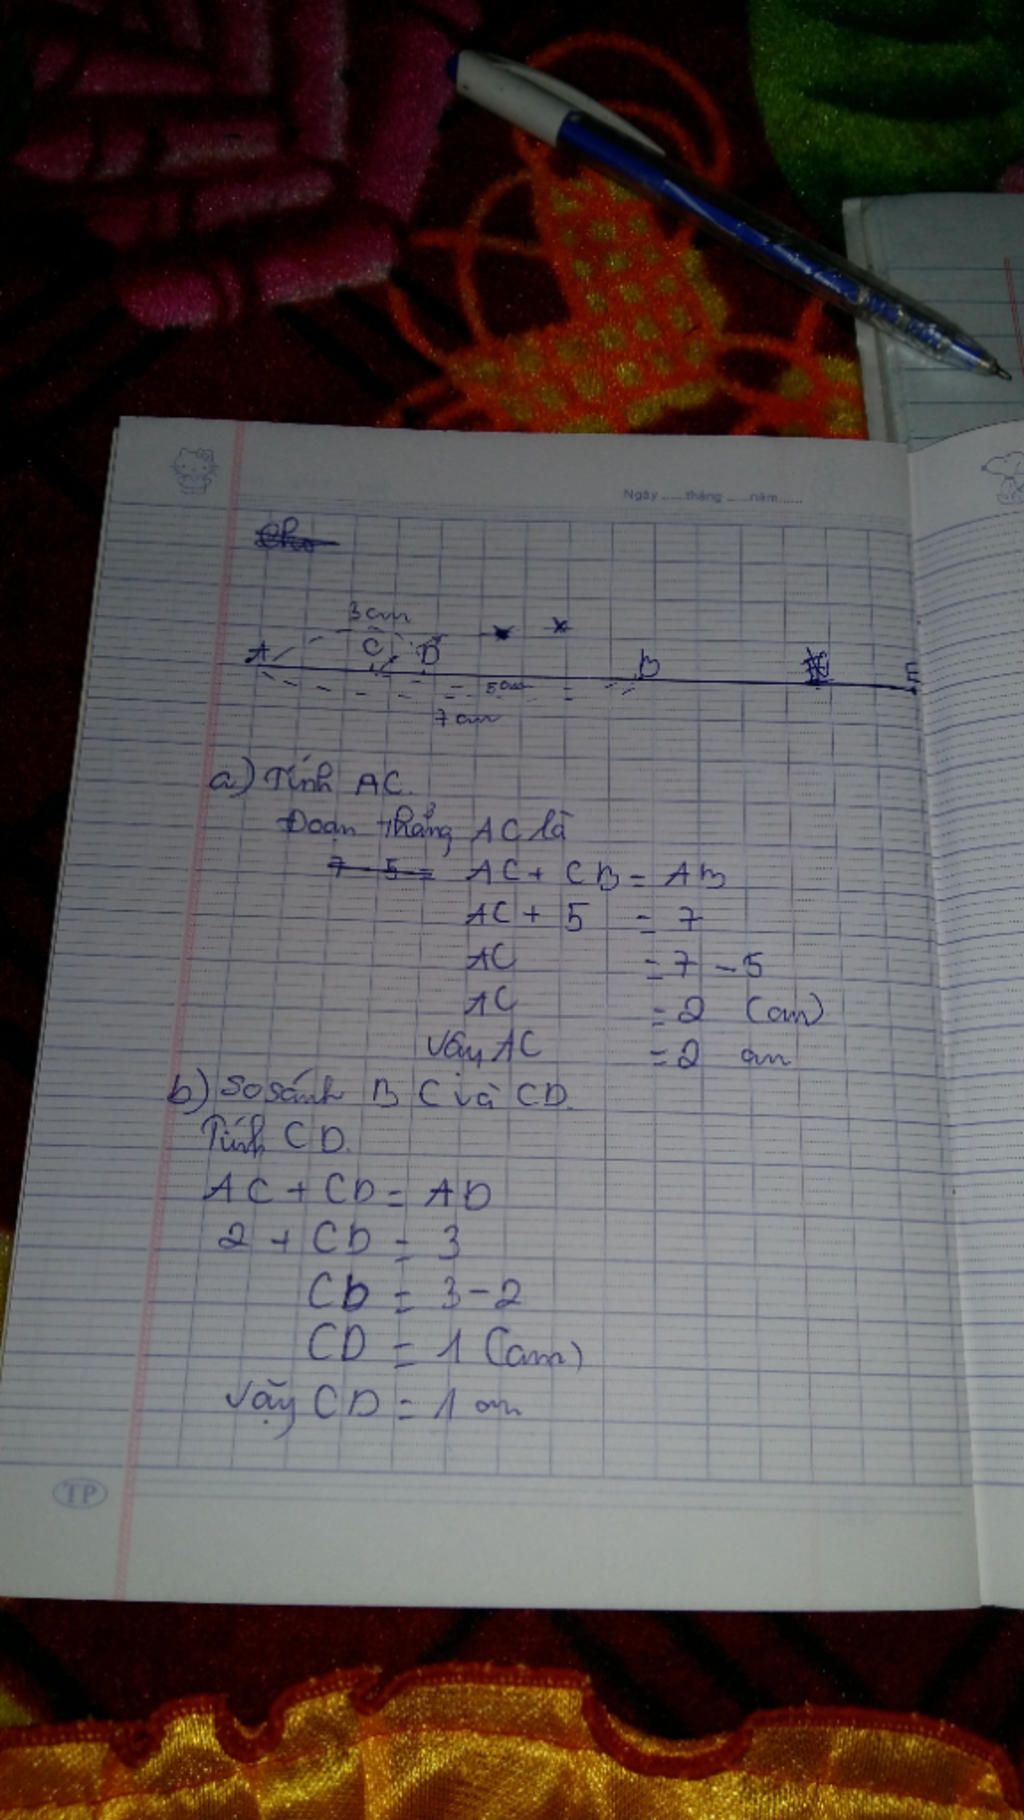 Ngày ...... tháng ...... năm ......
Cho
3 cm
A C D B E
5 cm
7 cm
a) Tính AC.
Đoạn thẳng AC là
7 - 5 = AC + CB = AB
AC + 5 = 7
AC = 7 - 5
AC = 2 (cm)
Vậy AC = 2 cm
b) So sánh BC và CD.
Tính CD.
AC + CD = AD
2 + CD = 3
CD = 3 - 2
CD = 1 (cm)
Vậy CD = 1 cm
TP